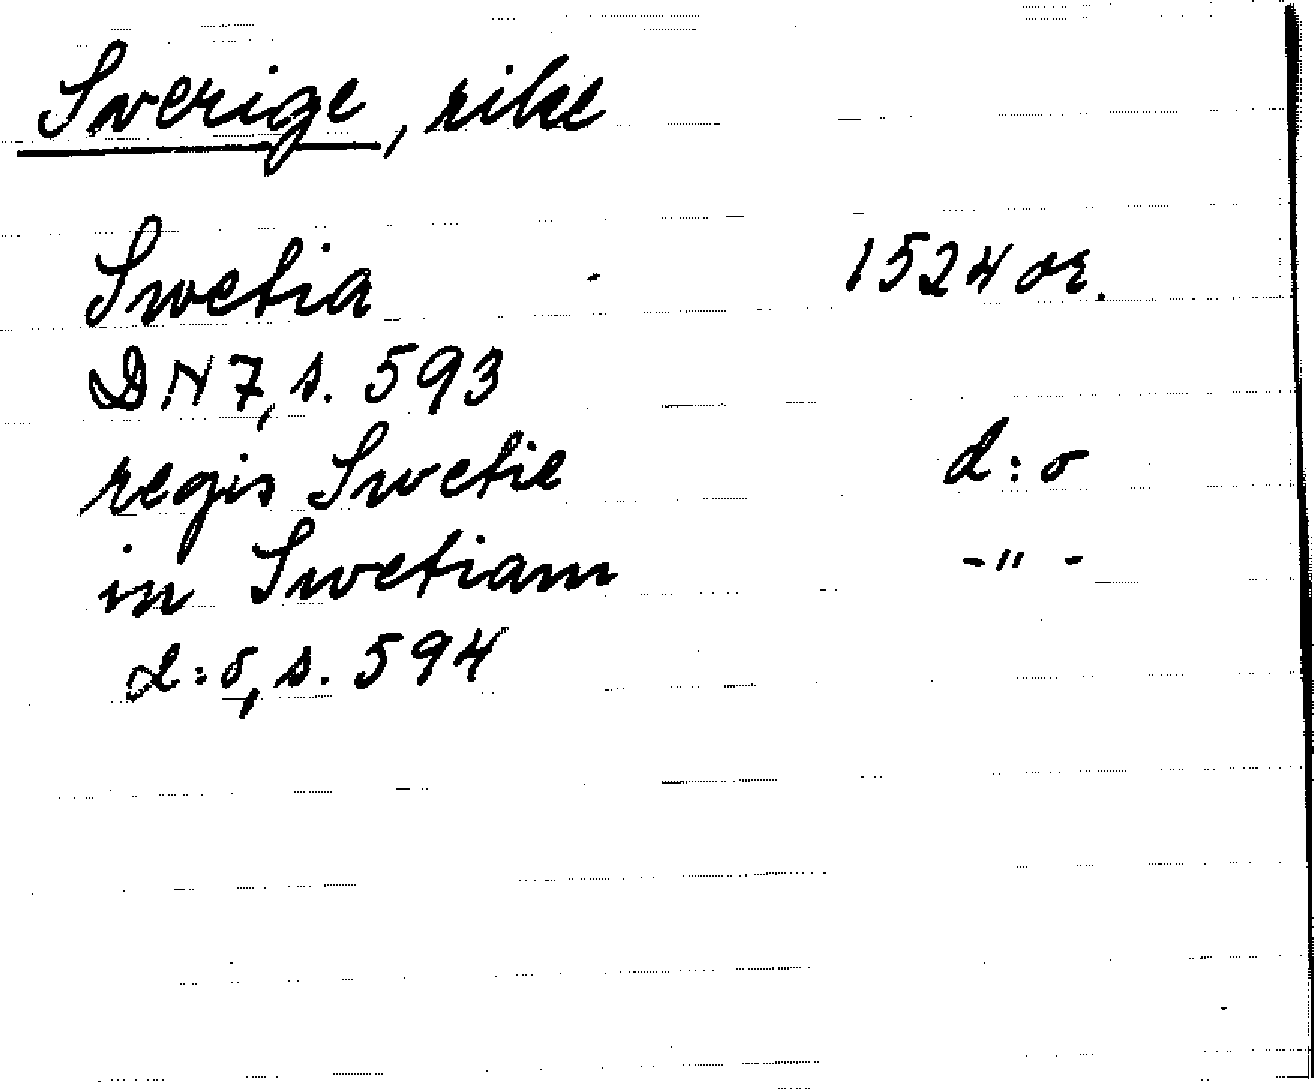 Sverige, rike
Swetia - 1524 or.
DN 7, s. 593
regis Swetie d:o
in Swetiam -"-
d:o, s. 594